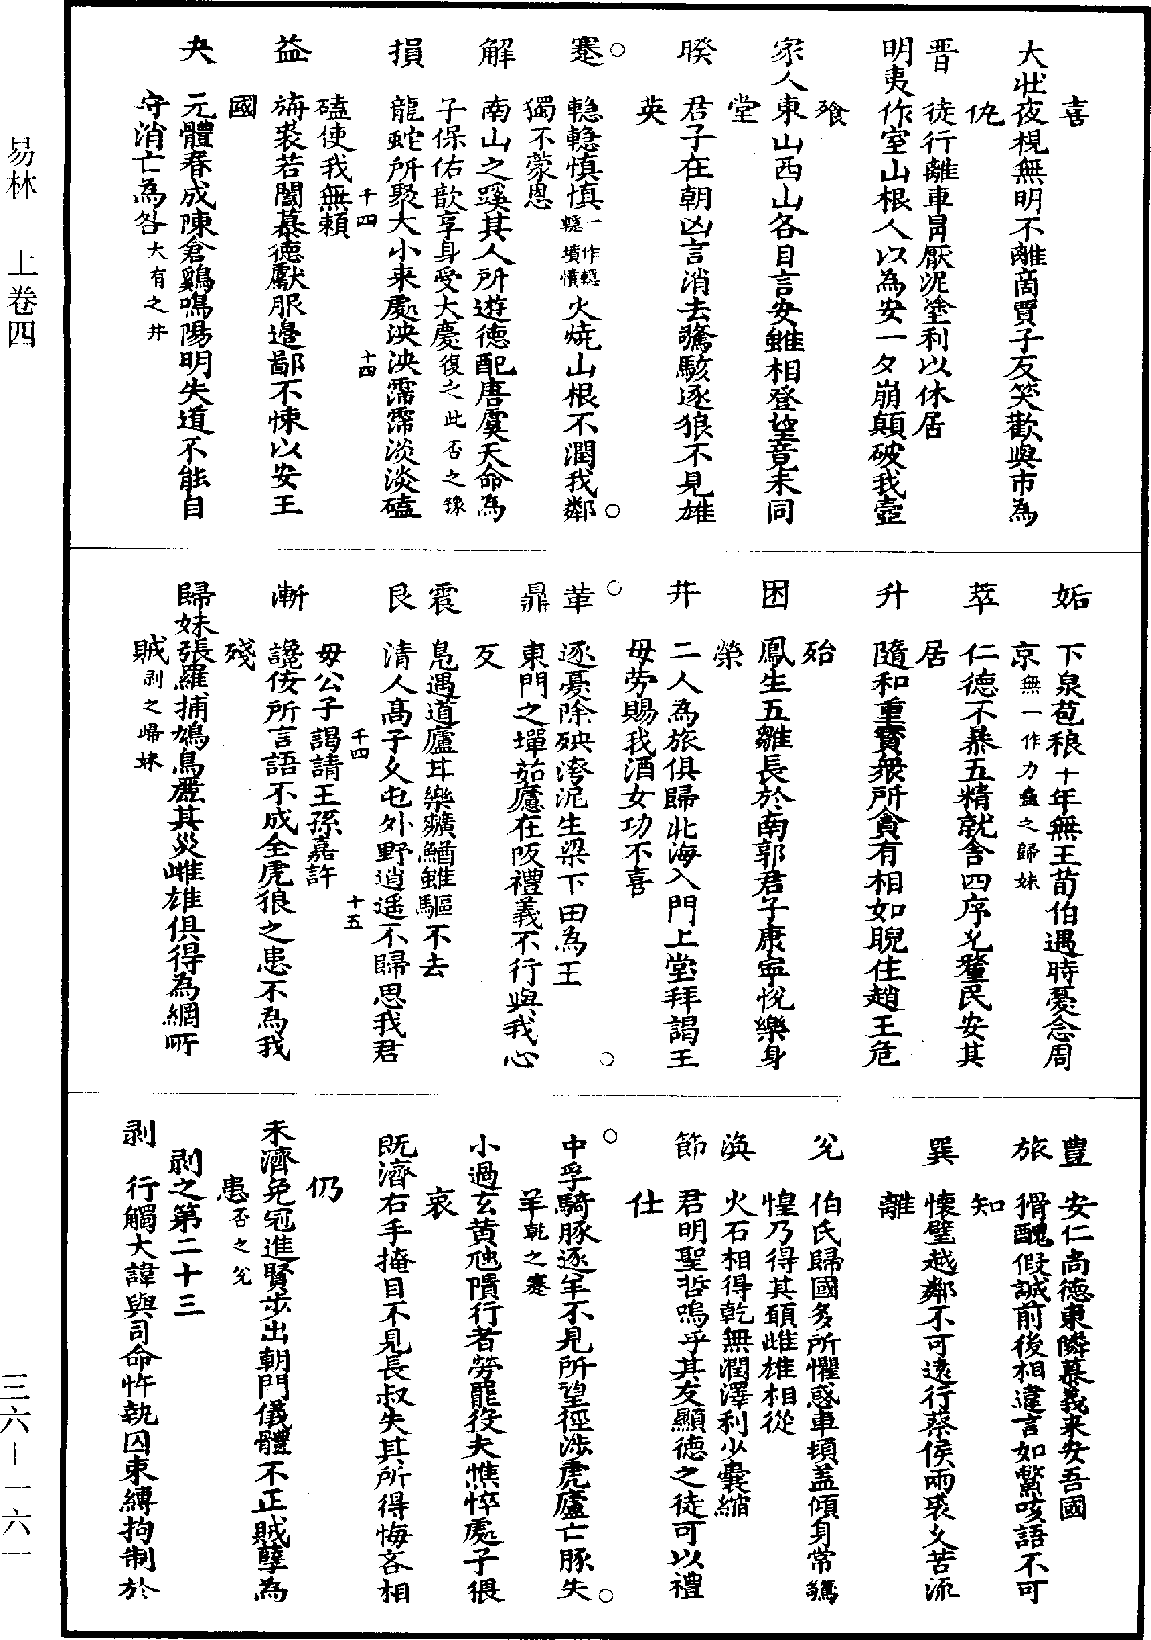 喜
大壯夜視無明不離商賈子友笑歡與市為
仇
晉　徒行離車冒厭泥塗利以休居
明夷作室山根人以為安一夕崩顛破我壺
飱
家人東山西山各自言安雖相登望竟未同
堂
睽　君子在朝凶言消去驚駭逐狼不見雄
英
蹇　轗轗慎慎火燒山根不潤我鄰
獨不蒙恩
解　南山之蹊其人所遊德配唐虞天命為
子保佑歆享身受大慶復之此否之
損　龍蛇所聚大小來處泱泱霈霈淡淡磕
磕使我無賴
十四
十四
益　旃裘若闔慕德獻服邊鄙不悚以安王
國
夬　元體春成陳倉鷄鳴陽明失道不能自
守消亡為咎大有之井
姤　下泉苞稂十年無王荀伯遇時憂念周
京無一作力蠱之歸妹
萃　仁德不恭五精就舍四序允釐民安其
居
升　隨和重寶衆所貪有相如睨住趙王危
殆
困　鳳生五雛長於南郭君子康寧悅樂身
榮
井　二人為旅俱歸北海入門上堂拜謁王
母勞賜我酒女功不喜
革　逐憂除殃洿泥生梁下田為王
鼎　東門之墠茹藘在阪禮義不行與我心
反
震　鳧遇道廬耳樂鰌雖驅不去
艮　清人高子久屯外野逍遙不歸思我君
母公子謁請王孫嘉許
千四
十五
漸　讒佞所言語不成全虎狼之患不為我
殘
歸妹張羅捕鳩鳥麗其災雌雄俱得為網所
賊剥之歸妹
豐　安仁尚德東隣慕義來安吾國
旅　猾醜假誠前後相違言如鱉咳語不可
知
巽　懷璧越鄰不可遠行蔡侯兩裘久苦流
離
兌　伯氏歸國多所懼惑車頃盖傾身常驚
惶乃得其頤雌雄相從
渙　火石相得乾無潤澤利少囊縮
節　君明聖哲嗚乎其友顯德之徒可以禮
仕
中孚騎豚逐羊不見所望徑涉虎廬亡豚失
羊乾之蹇
小過玄黃虺隤行者勞罷役夫憔悴處子畏
哀
既濟右手掩目不見長叔失其所得悔吝相
仍
未濟免冠進賢步出朝門儀體不正賊孽為
患否之兌
剥之第二十三
剥　行觸大諱與司命忤執囚束縛拘制於
易林　上卷四
三六—一六一